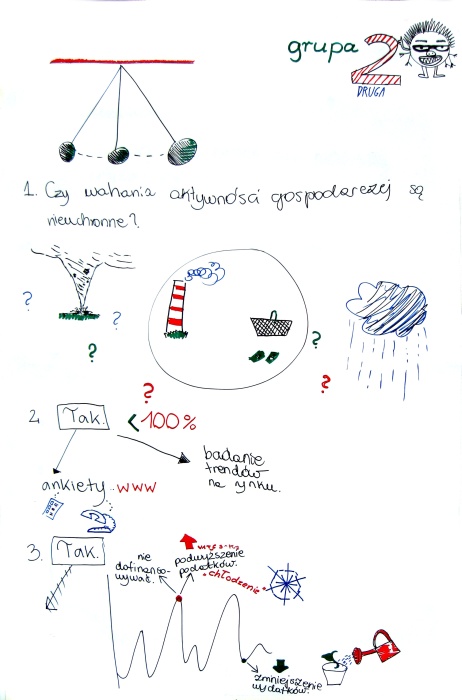 grupa 2
DRUGA
1. Czy wahania aktywności gospodarczej są
nieuchronne?
?
?
?
?
?
?
2. Tak. < 100%
badanie
trendów
na rynku.
ankiety WWW
3. Tak.
nie
dofinanso-
wywać.
podwyższenie
podatków.
• chłodzenie •
zmniejszenie
wydatków.